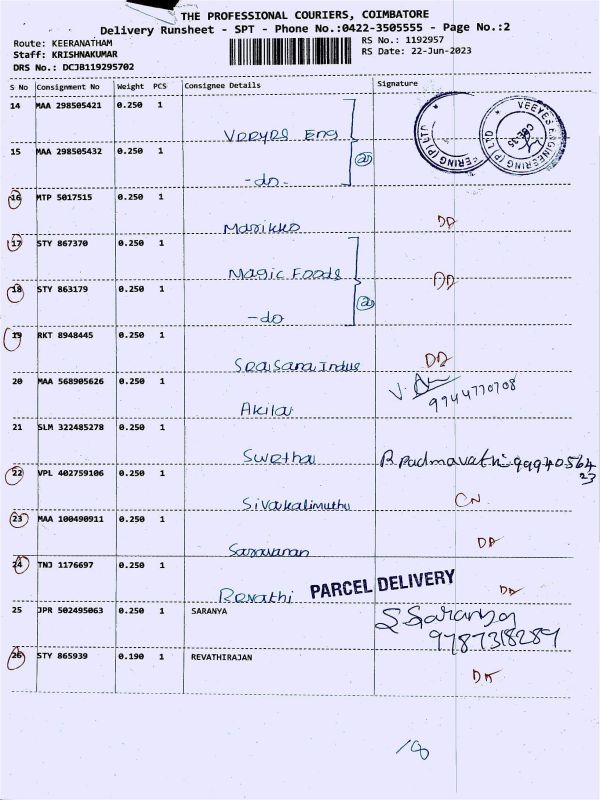 THE PROFESSIONAL COURIERS, COIMBATORE
Delivery Runsheet - SPT - Phone No.:0422-3505555 - Page No.:2
Route: KEERANATHAM RS No.: 1192957
Staff: KRISHNAKUMAR RS Date: 22-Jun-2023
DRS No.: DCJB119295702
S No Consignment No Weight PCS Consignee Details Signature
14 MAA 298505421 0.250 1 Veeyes Eng
VEEYES ENGINEERING (P) LTD
15 MAA 298505432 0.250 1 -do-
16 MTP 5017515 0.250 1 Marikko DD
17 STY 867370 0.250 1 Magic Foods DD
18 STY 863179 0.250 1 -do
19 RKT 8948445 0.250 1 DD
20 MAA 568905626 0.250 1 Akila 9944770708
21 SLM 322485278 0.250 1 Swetha R. Padmavathi 9994056423
22 VPL 402759106 0.250 1 Sivakalimuthu CN
23 MAA 100490911 0.250 1 Saravanan DD
24 TNJ 1176697 0.250 1 Revathi PARCEL DELIVERY DD
25 JPR 502495063 0.250 1 SARANYA S. Saranya
9787318289
26 STY 865939 0.190 1 REVATHIRAJAN DK
18